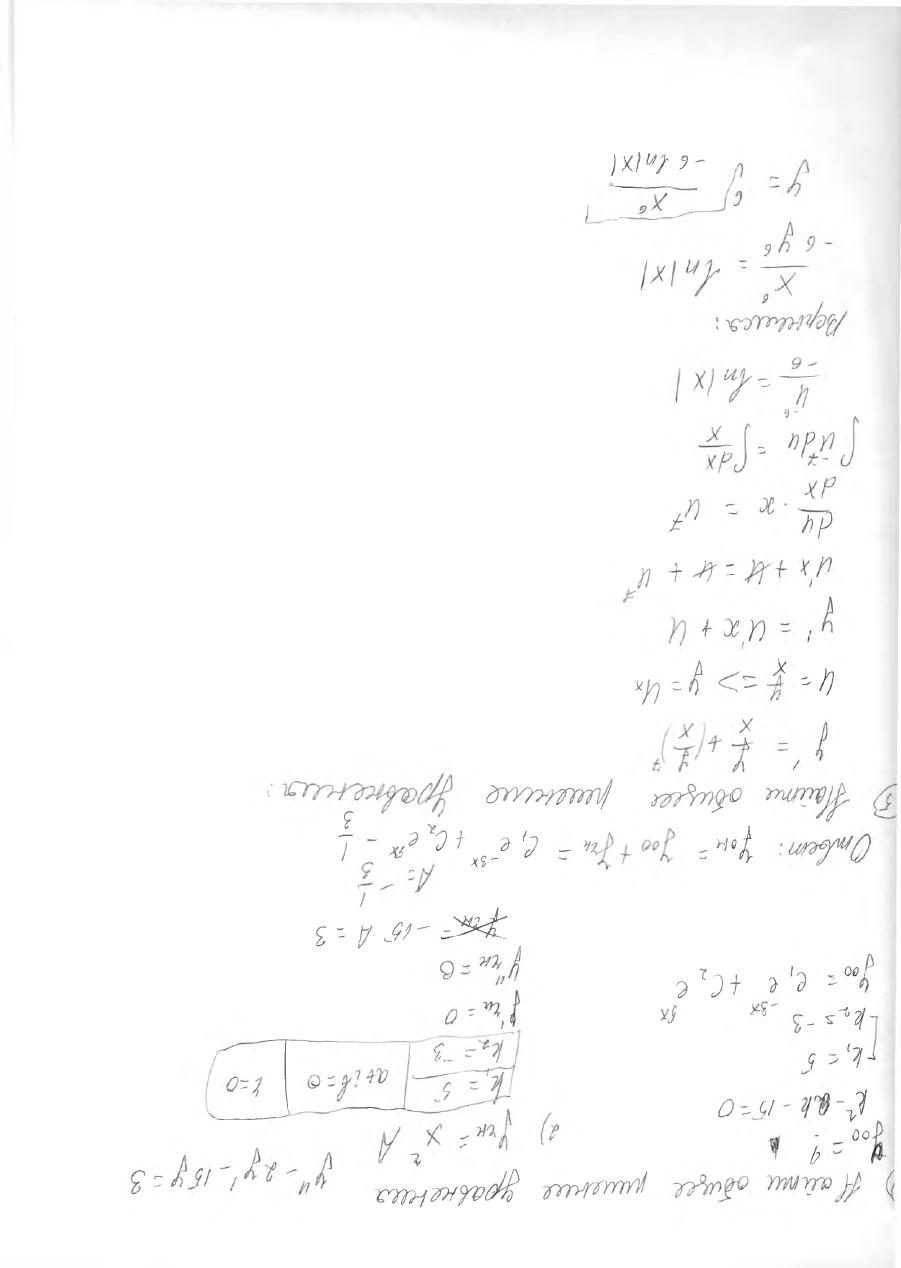 1) Найти общее решение уравнения y'' - 2y' - 15y = 3
yоо = ?
k² - 2k - 15 = 0
k₁ = 5
k₂ = -3
yоо = C₁e⁻³ˣ + C₂e⁵ˣ
2) yчн = xᶻ A
k₁ = 5 a+ib=0 z=0
k₂ = -3
y'чн = 0
y''чн = 0
-15A = 3
A = -1/3
Ответ: yон = yоо + yчн = C₁e⁻³ˣ + C₂e⁵ˣ - 1/3
Найти общее решение уравнения:
y' = y/x + (y/x)⁷
u = y/x => y = ux
y' = u'x + u
u'x + u = u + u⁷
du/dx · x = u⁷
∫u⁻⁷du = ∫dx/x
u⁻⁶/-6 = ln|x|
Вернемся:
x⁶/-6y⁶ = ln|x|
y = ⁶√(x⁶/-6 ln|x|)